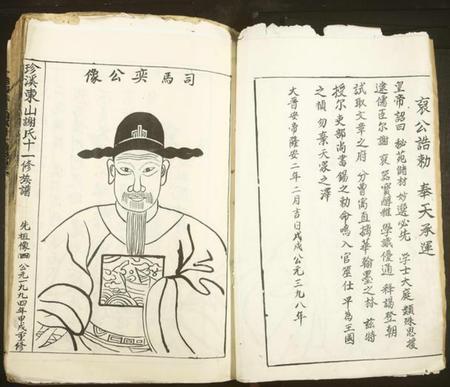 司馬奕公像
珍溪東山謝氏十一修族譜
先祖像四 公元一九九四年甲戌重修
裒公誥勅 奉天承運
皇帝詔曰 秘苑儲材 妙選必先 學士大庭 類殊思援
逮儒臣尔謝 裒器實醇雅 學識優通 釋譌登朝
試取文章之府 分曹寓直摛華翰墨之林 茲特
授尔吏部尚書錫之勅命嗚入官筮仕早為王國
之楨 勿棄天家之澤
大晉安帝隆安二年二月吉日戊戌公元三九八年